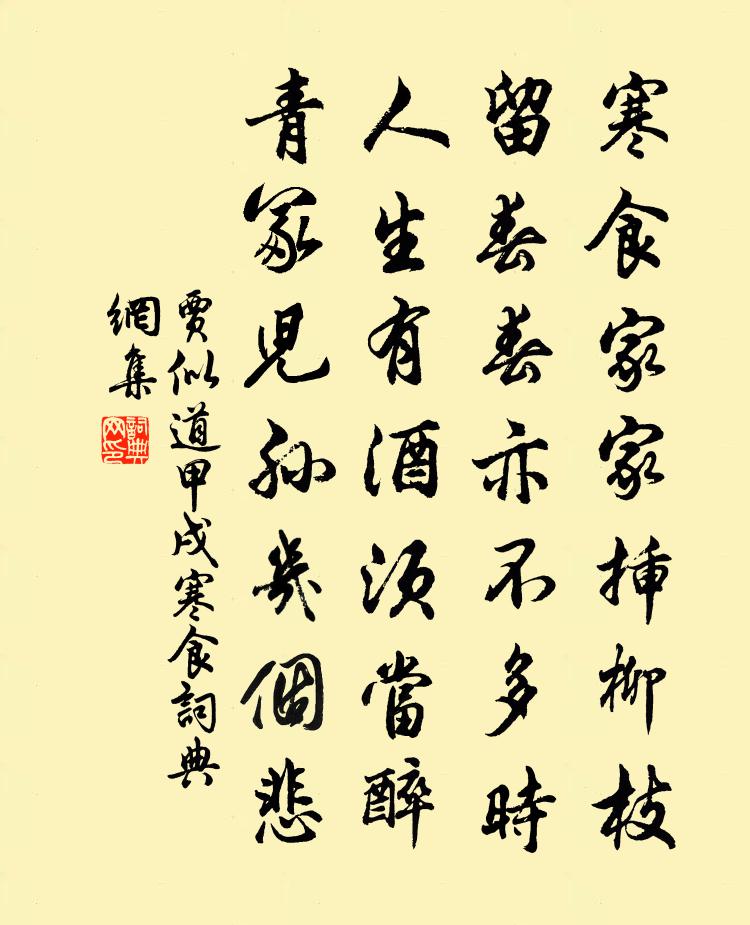 寒食家家揷柳枝
留春春亦不多時
人生有酒須當醉
青冢兒孫幾個悲
賈似道甲戌寒食詞典
網集
詞典
网印